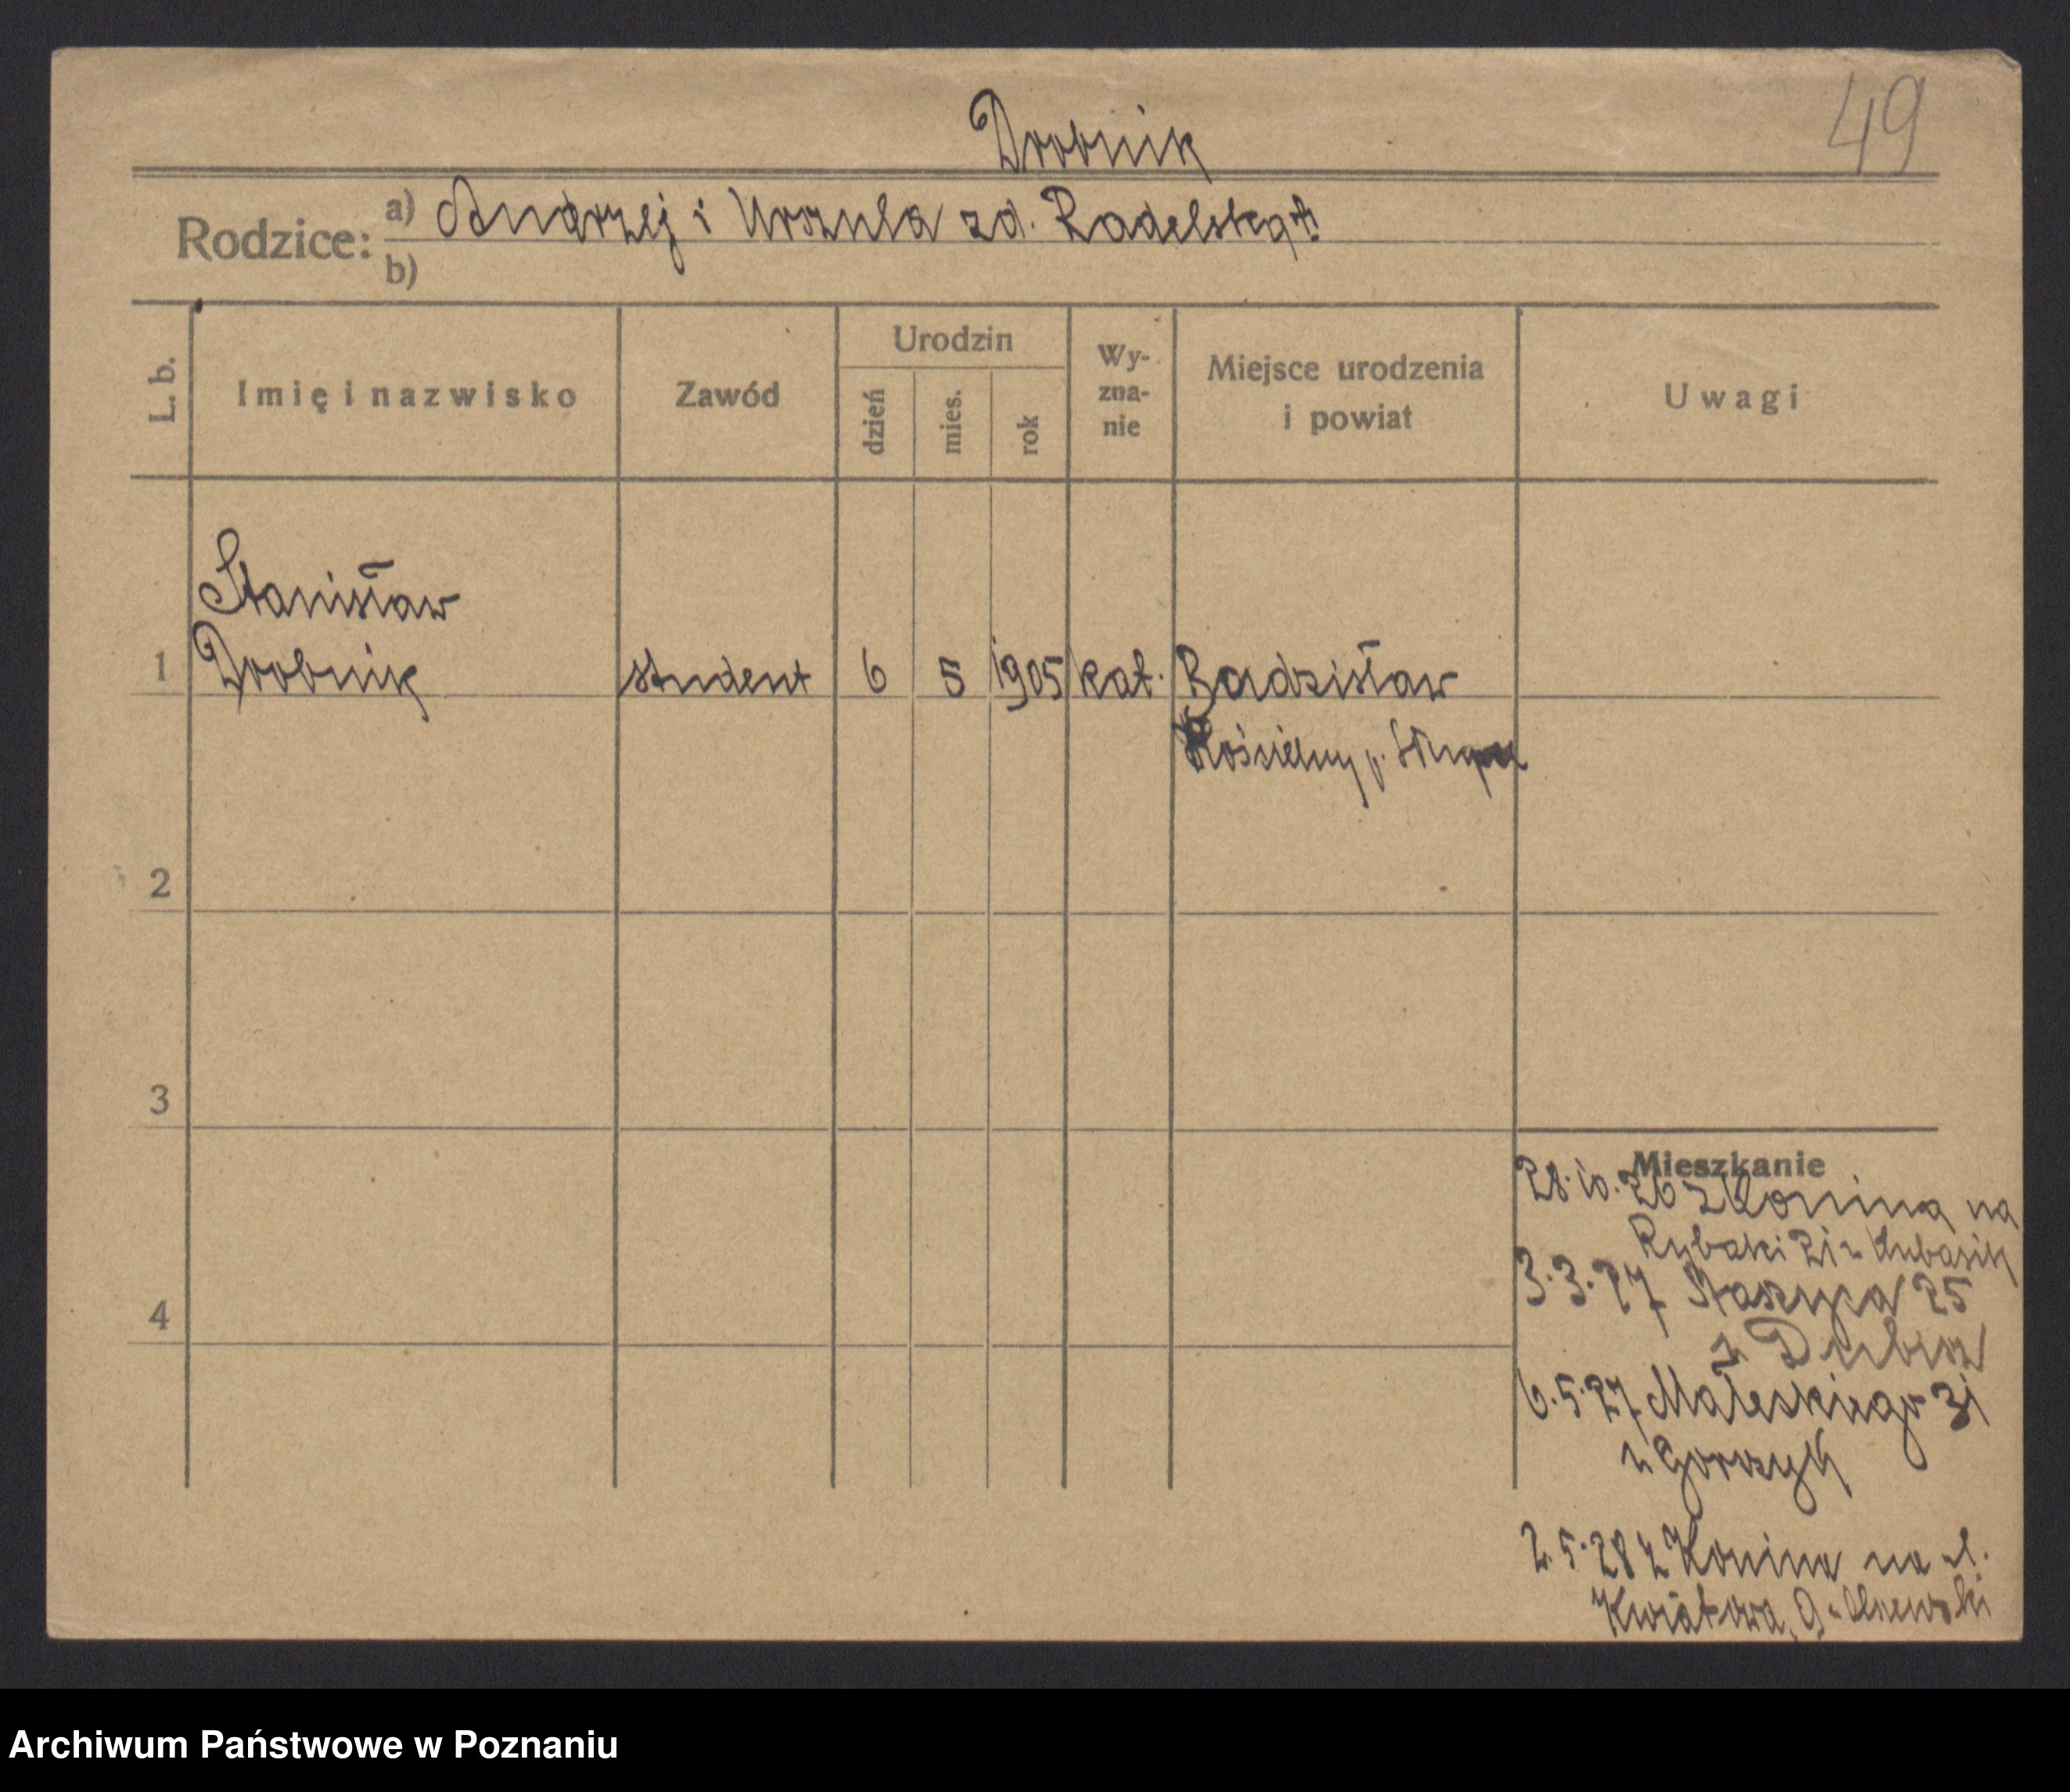 Drobnik
49
Rodzice: a) Andrzej i Urszula zd. Radelska
b)
L. b.
Imię i nazwisko
Zawód
Urodzin
dzień
mies.
rok
Wy-
zna-
nie
Miejsce urodzenia
i powiat
Uwagi
Stanisław
1 Drobnik student 6 5 1905 kat. Budzisław
Kościelny p.
2
3
4
Mieszkanie
28.10.26 z Konina na
Rybaki 21 u Kubasik
3.3.27 Staszyca 25
u
6.5.27 Małeckiego 31
u
2.5.28 z Konina na ul.
Kwiatowa 9 u
Archiwum Państwowe w Poznaniu